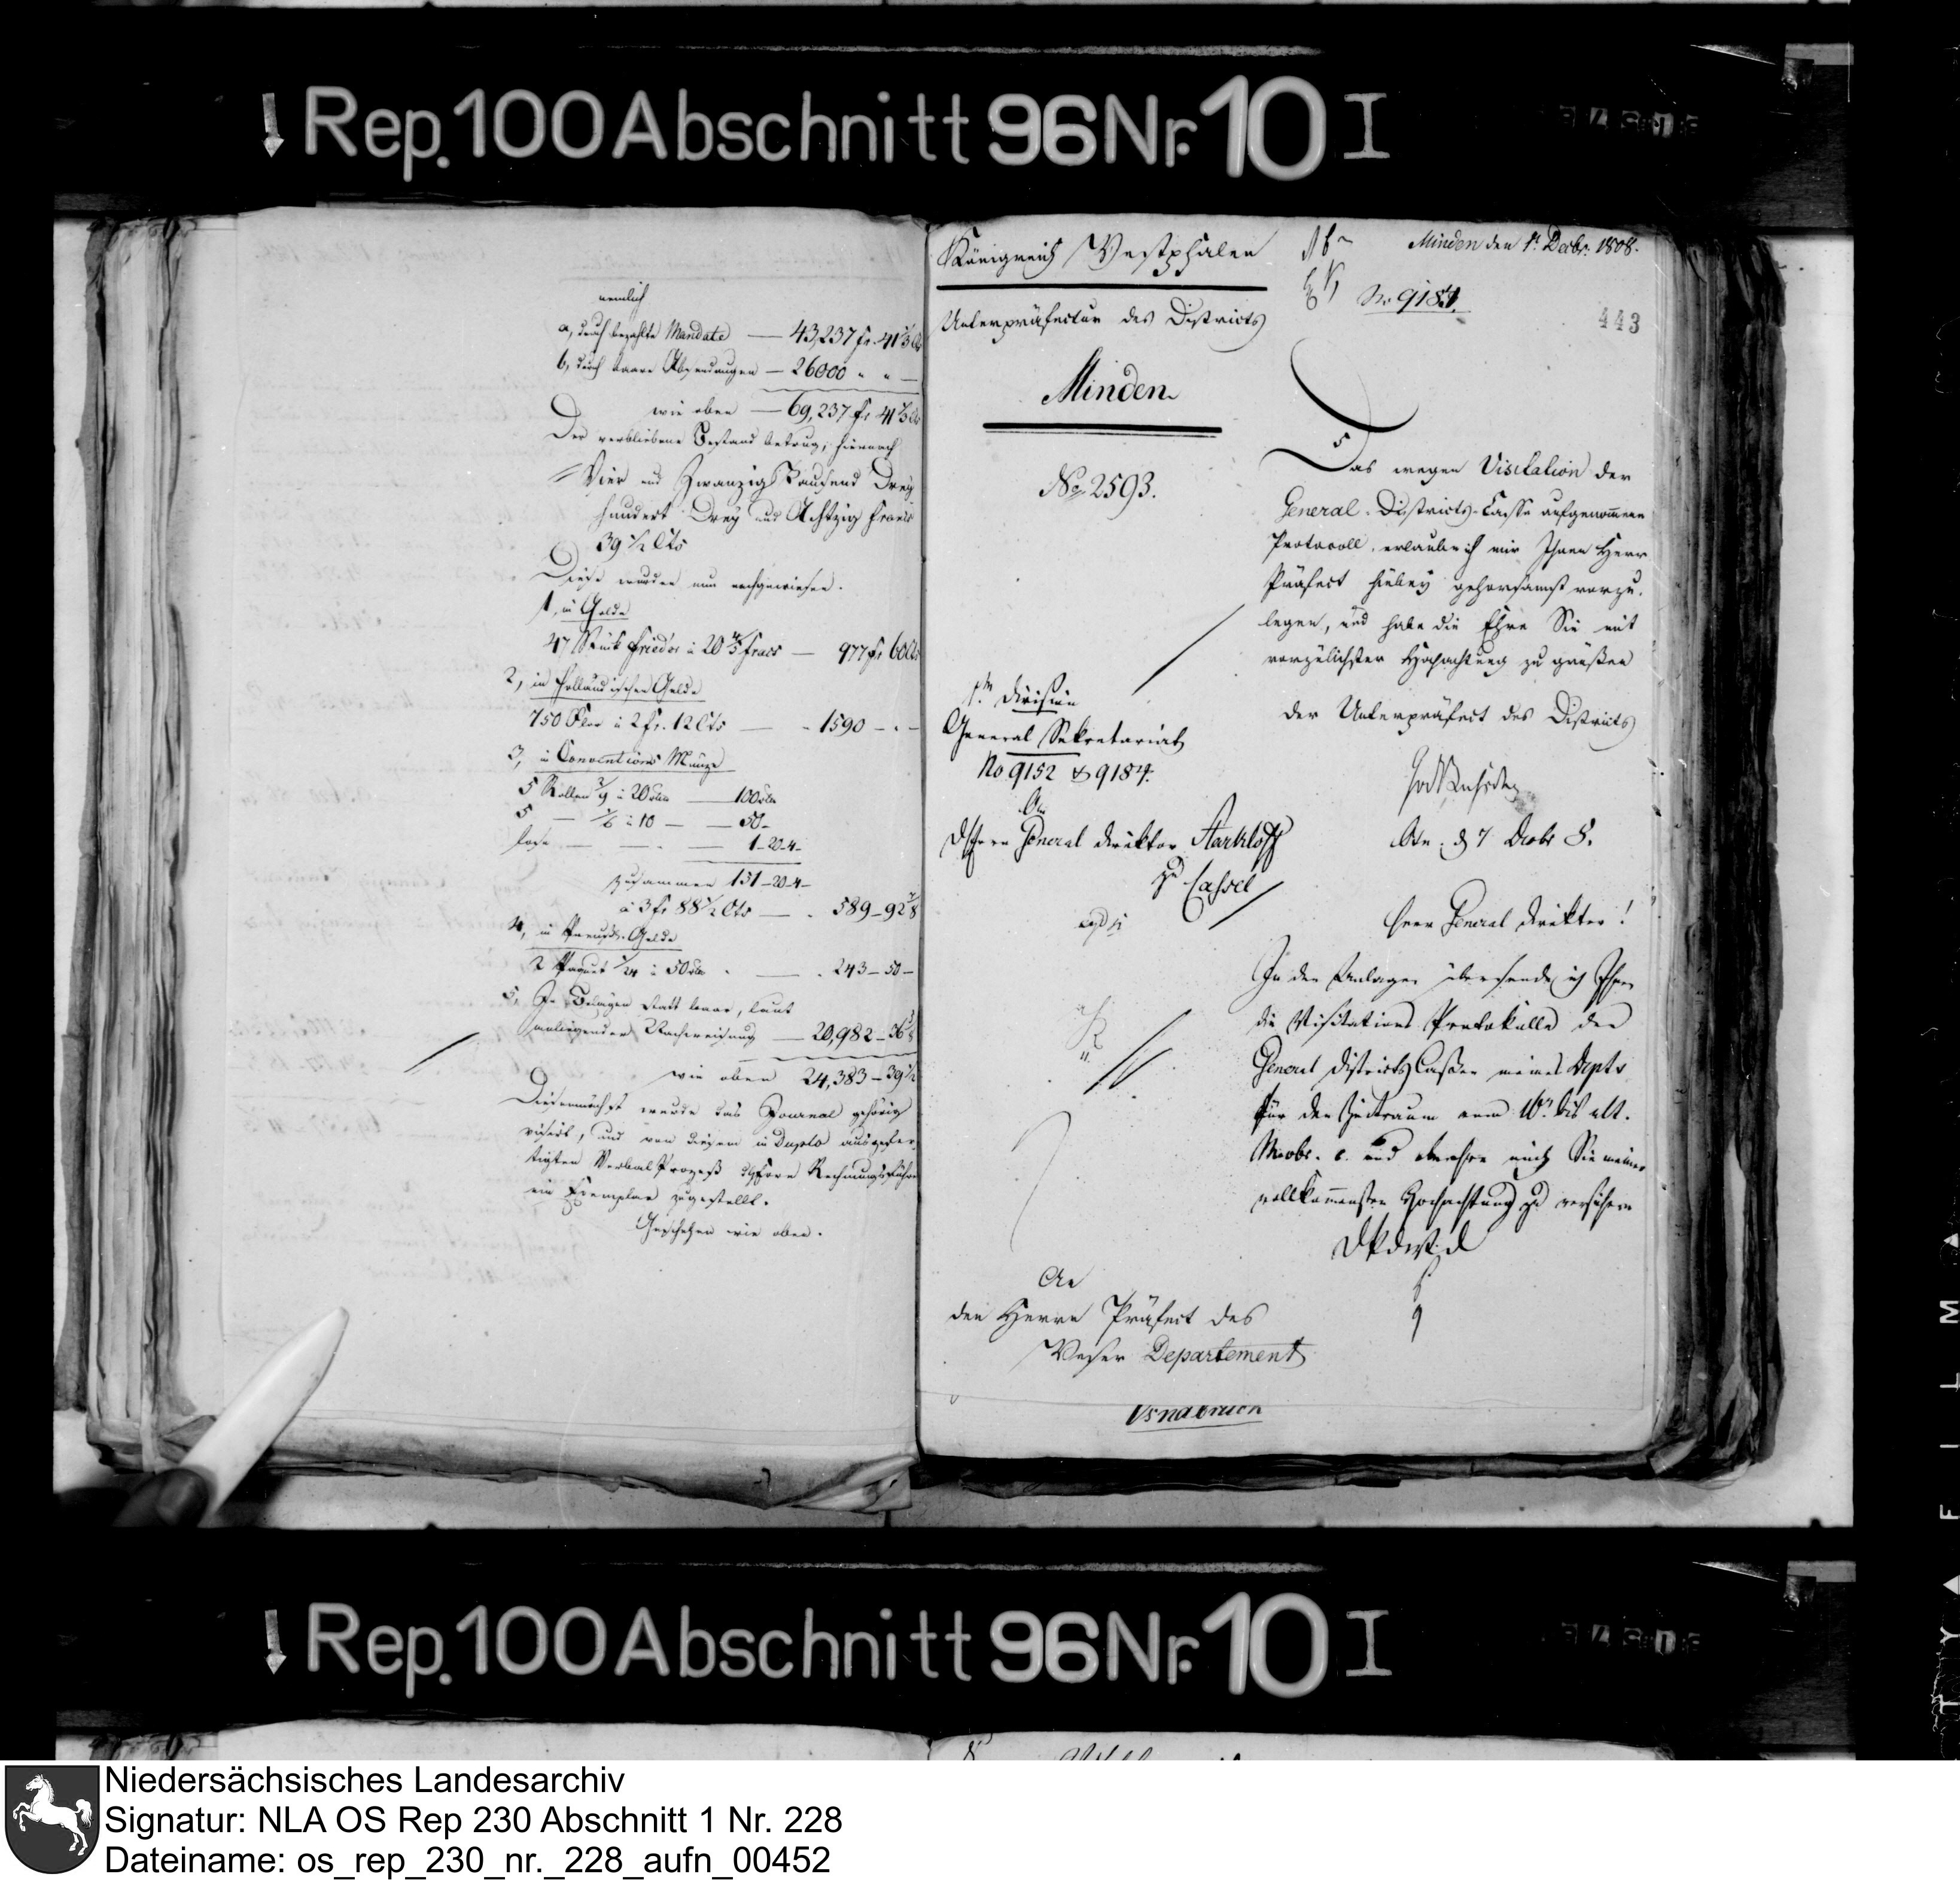 Rep. 100 Abschnitt 96 Nr. 10 I
nemlich
a, durch bezahlte Mandate — 43,237 fr. 41 1/3 Cts
b, durch baare Absendungen — 26000 " " —
wie oben — 69,237 fr 41 1/3 Cts
Der verbliebene Bestand betrug, hiernach
Vier und Zwanzig Tausend Drey
hundert Drey und Achtzig Francs
39 1/2 Cts
Diese wurden nun nachgewiesen.
1, in Golde
47 Stück Friedor à 20 4/5 Francs — 977 fr 60 Cts
2, in Holländischen Gelde
750 Flor à 2 fr. 12 Cts — 1590 - . -
3, in Conventions Münze
5 Rollen à 20 — 100
5 — 1/6 à 10 — 50 -
lose — 1 - 20 - 4 -
zusammen 151 - 20 - 4 -
à 3 fr 88 1/2 Cts — 589 - 92 7/8
4, in Preuß. Gelde
2 Paquet 1/24 à 50 — 243 - 50 -
5, In Belägen statt baar, laut
anliegender Nachweisung — 20,982 - 36
wie oben 24,383 - 39 1/2
Diesemnächst wurde das Journal gehörig
visirt, und von diesem in Duplo ausgefer-
tigten Verbal Prozeß Rechnungsführer
ein Exemplar zugestellt.
Geschehen wie oben.
Königreich Westphalen
Minden den 1t Decbr. 1808.
No 9184.
443
Unterpräfectur des Districts
Minden
No 2593.
Das wegen Visitation der
General-Districts-Casse aufgenommene
Protocoll, erlaube ich mir Ihnen Herr
Präfect hiebey gehorsamst vorzu-
legen, und habe die Ehre Sie mit
vorzüglichster Hochachtung zu grüßen
der Unterpräfect des Districts
1te Division
General Sekretariat
No 9152 & 9184.
An
General Direktor Starkloff
zu Cassel
d 7 Decbr 8.
Herr General Direktor!
In der Anlage übersende ich Ihnen
die Visitations Protokolle der
General Districts Cassen meines Depts
für den Zeitraum vom 16n bis ult.
Novbr. c. und beehre mich Sie meiner
vollkommensten Hochachtung zu versichern
An
den Herrn Präfect des
Weser Departement
Osnabrück
Rep. 100 Abschnitt 96 Nr. 10 I
FILM
Niedersächsisches Landesarchiv
Signatur: NLA OS Rep 230 Abschnitt 1 Nr. 228
Dateiname: os_rep_230_nr._228_aufn_00452